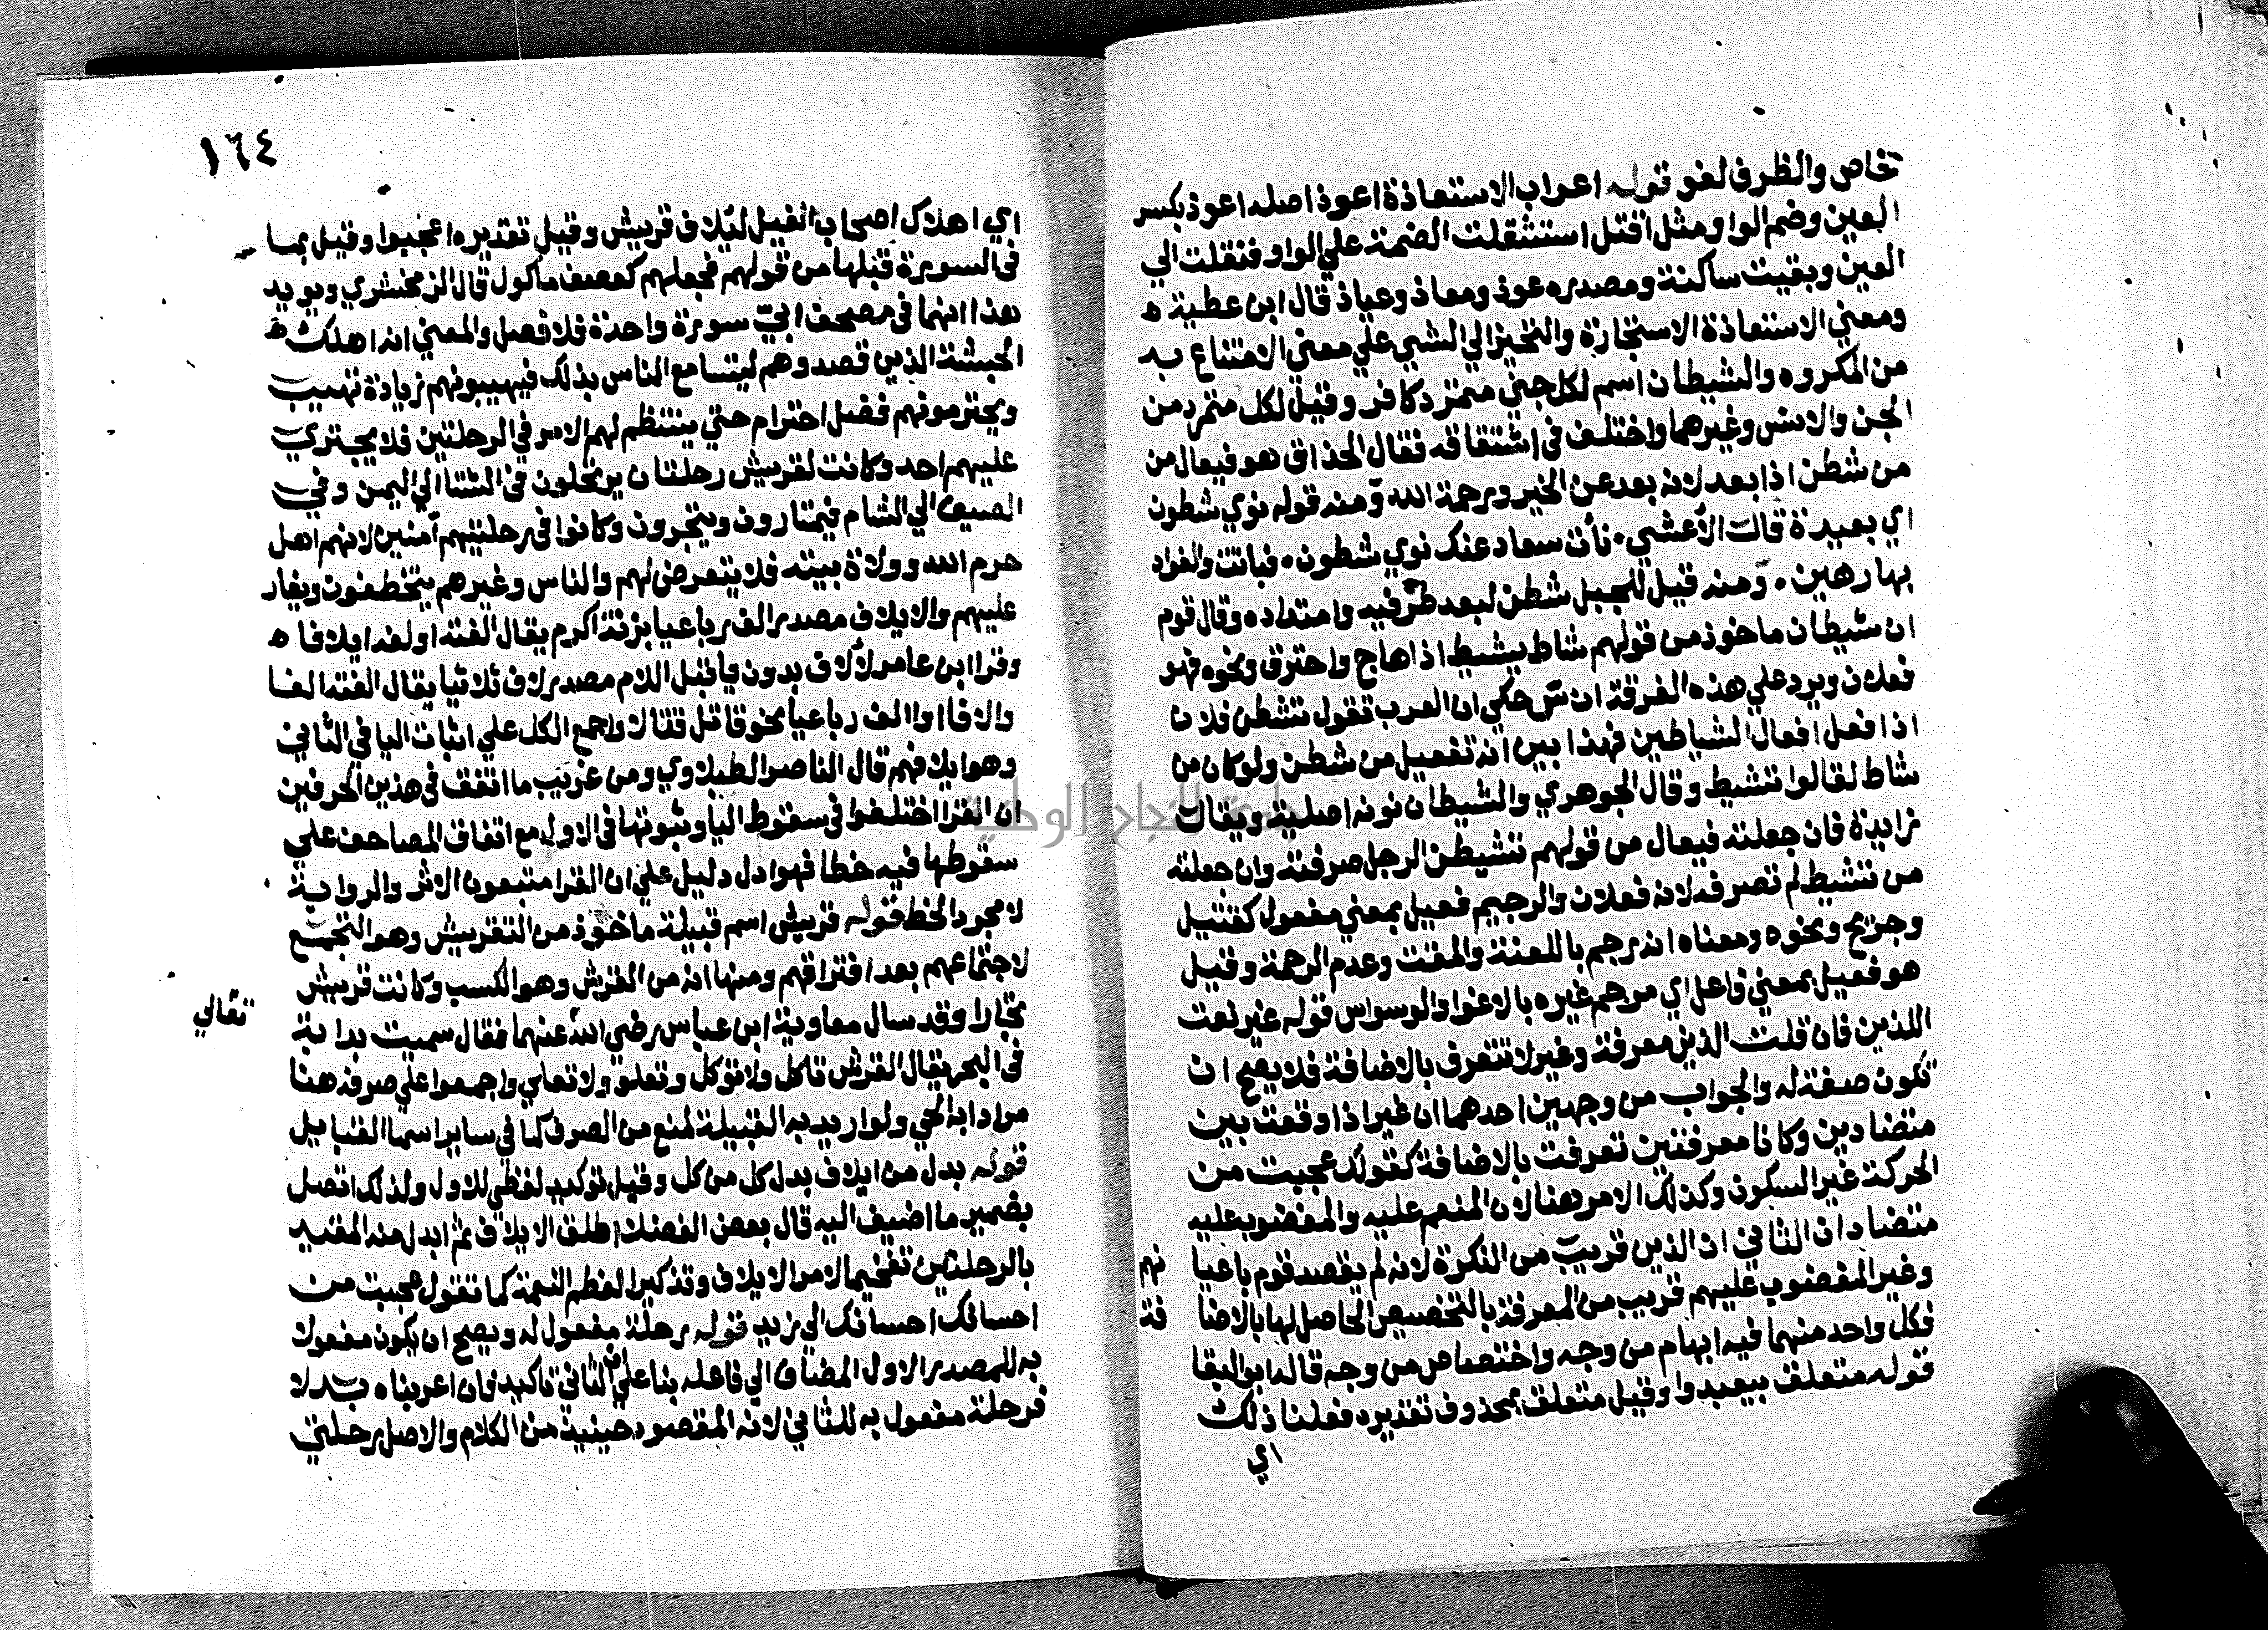 خاص والظرف لغو قوله اعراب الاستعاذة اعوذ اصله اعوذ بكسر
العين وضم الواو مثل اقتل استثقلت الضمة علي الواو فنقلت الي
العين وبقيت ساكنة ومصدره عوذ ومعاذ وعياذ قال ابن عطية ه
ومعني الاستعاذة الاستجارة والتحيز الي الشي علي معني الامتناع به
من المكروه والشيطان اسم لكل جني متمرد كافر وقيل لكل متمرد من
الجن والانس وغيرهما واختلف في اشتقاقه فقال الحذاق هو فيعال من
من شطن اذا بعد لانه بعد عن الخير ورحمة الله ومنه قوله نوي شطون
اي بعيدة قالت الأعشي • نأت سعاد عنك نوي شطون • فباتت والفراد
بها رهين • ومنه قيل للحبل شطن لبعد طرفيه وامتداده وقال قوم
ان شيطان ماخوذ من قولهم شاط يشيط اذا هاج واحترق ونحوه فهو
فعلان ويرد علي هذه الفرقة ان س حكي ان العرب تقول تشطن فلان
اذا فعل افعال الشياطين فهذا بين انه تفعيل من شطن ولو كان من
شاط لقالوا تشيط وقال الجوهري والشيطان نونه اصلية ويقال
زايدة فان جعلته فيعال من قولهم تشيطن الرجل صرفته وان جعلته
من تشيط لم تصرفه لانه فعلان والرجيم فعيل بمعني مفعول كقتيل
وجريح ونحوه ومعناه انه رجم باللعنة والمقت وعدم الرحمة وقيل
هو فعيل بمعني فاعل اي مرجم غيره بالاغوا والوسواس قوله غير نعت
اللذين فان قلت الذين معرفة وغير لا تتعرف بالاضافة فلا يصح ان
تكون صفة له والجواب من وجهين احدهما ان غير اذا وقعت بين
متضادين وكانا معرفتين تعرفت بالاضافة كقولك عجبت من
الحركة غير السكون وكذلك الامر هنا لان المنعم عليه والمغضوب عليه
متضادان الثاني ان الذين قريب من النكرة لانه لم يقصد قوم باعيا نهم
وغير المغضوب عليهم قريب من المعرفة بالتخصيص الحاصل لها بالاضا فة
فكل واحد منهما فيه ابهام من وجه واختصاص من وجه قاله ابو البقا
قوله متعلق بيعبدوا وقيل متعلق بمحذوف تقديره فعلنا ذلك
اي
١٦٤
اي اهلاك اصحاب الفيل ليلاف قريش وقيل تقديره اعجبوا وقيل بما
في السورة قبلها من قولهم فجعلهم كعصف ماكول قال الزمخشري ويويد
هذا انهما في مصحف ابيّ سورة واحدة فلا فصل والمعني انه اهلك ه
الحبشة الذين قصدوهم ليتسامع الناس بذلك فيهيبونهم زيادة تهيب
ويحترمونهم فضل احترام حتي ينتظم لهم الامر في الرحلتين فلا يجتري
عليهم احد وكانت لقريش رحلتان يرحلون في الشتا الي اليمن وفي
الصيف الي الشام فيمتارون ويتجرون وكانوا في رحلتيهم آمنين لانهم اهل
حرم الله وولاة بيته فلا يتعرض لهم والناس وغيرهم يتخطفون ويغار
عليهم والايلاف مصدر الف رباعيا بزنة اكرم يقال الفته اولفه ايلافا ه
وقرا ابن عامر لألاف بدون يا قبل اللام مصدر لاف ثلاثيا يقال الفته الفا
والافا او الف رباعيا نحو قاتل قتالا واجمع الكل علي اثبات اليا في الثاني
وهو ايلافهم قال الناصر الطبلاوي ومن غريب ما اتفق في هذين الحرفين
ان القرا اختلفوا في سقوط اليا وثبوتها في الاول مع اتفاق المصاحف علي
سقوطها فيه خطا فهو ادل دليل علي ان القرا متبعون الاثر والرواية
لا مجرد الخط قوله قريش اسم قبيلة ماخوذ من التقريش وهو التجمع
لاجتماعهم بعد افتراقهم ومنها انه من القرش وهو الكسب وكانت قريش
تجارا وقد سال معاوية ابن عباس رضي الله عنهما فقال سميت بدابة
تعالي
في البحر يقال القرش تاكل ولا توكل وتعلو ولا تعلي واجمعوا علي صرفه هنا
مرادا به الحي ولو اريد به القبيلة لمنع من الصرف كما في ساير اسما القبايل
قوله بدل من ايلاف بدل كل من كل وقيل توكيد لفظي للاول ولذلك اتصل
بضمير ما اضيف اليه قال بعض الفضلا اطلق الايلاف ثم ابدل منه المقيد
بالرحلتين تفخيما لامر الايلاف وتذكيرا لعظم النعمة كما تقول عجبت من
احسانك احسانك الي زيد قوله رحلة مفعول له ويصح ان يكون مفعولا
به للمصدر الاول المضاف الي فاعله بنا علي ان الثاني تاكيد فان اعربناه بدلا
فرحلة مفعول به للثاني لانه المقصود حينيذ من الكلام والاصل رحلتي